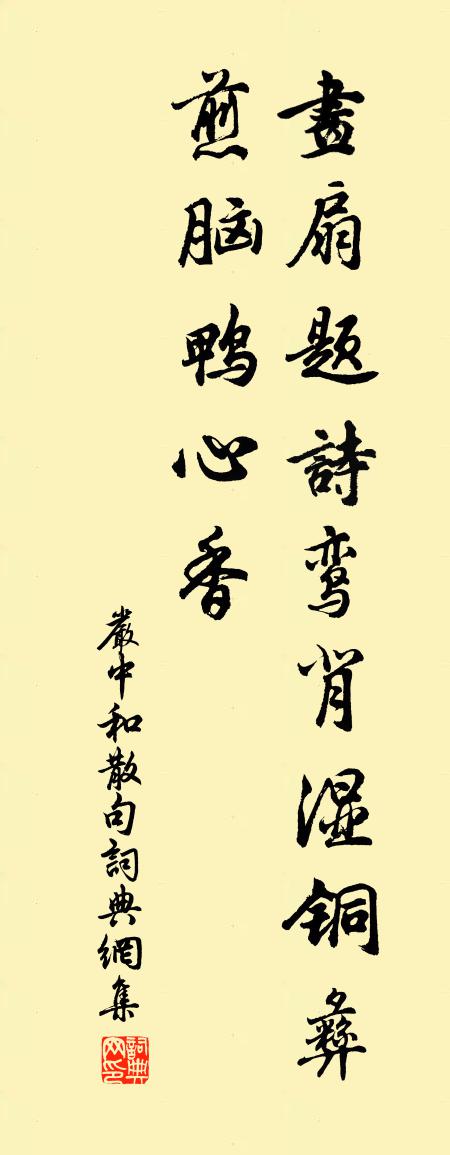 畫扇題詩鸾背湿铜彝
煎脑鸭心香
嚴中和散句詞典網集
詞典网印